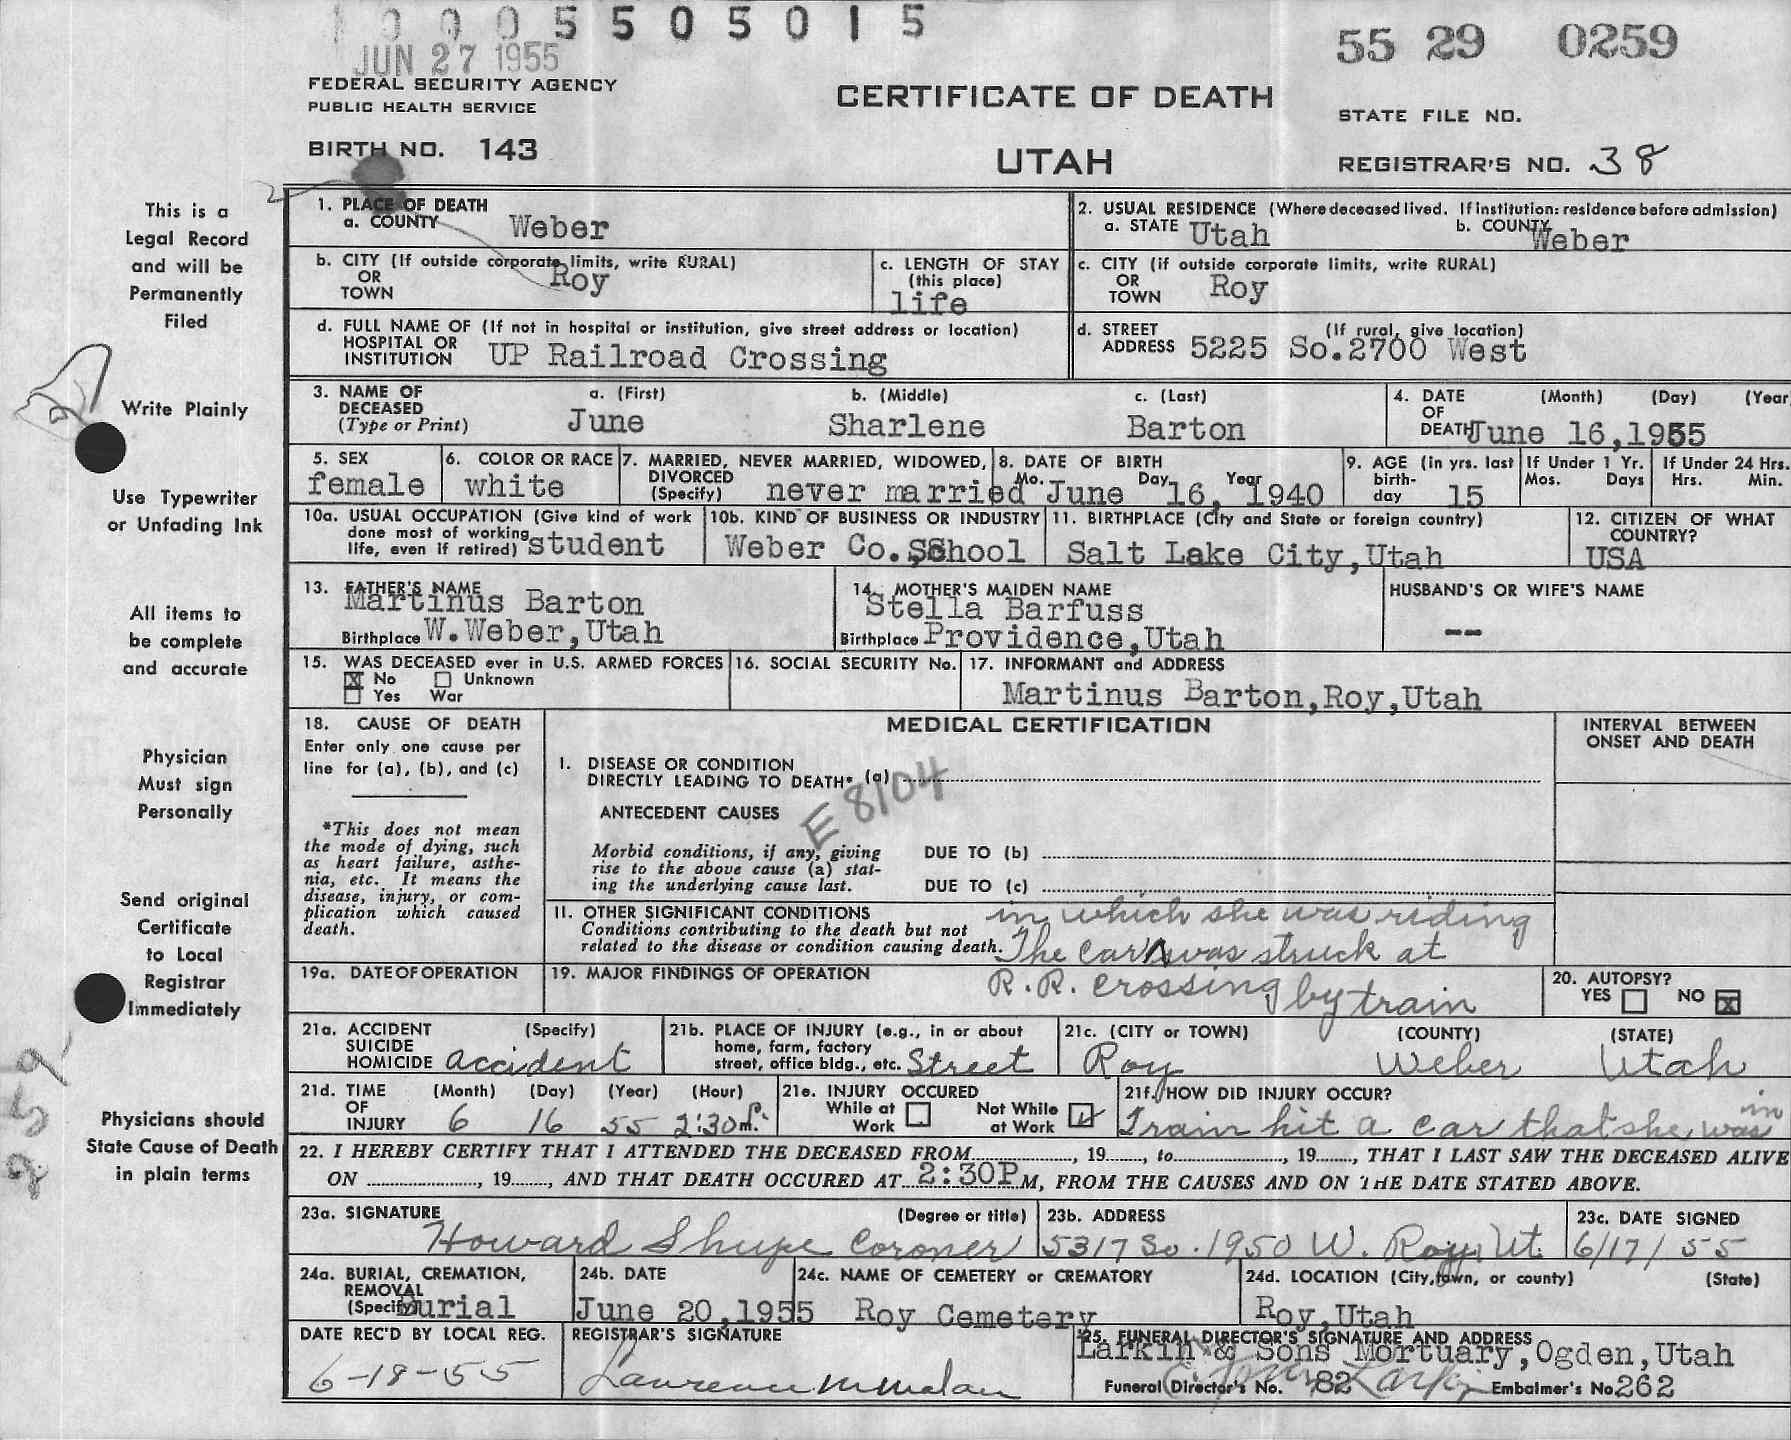 1000550501 5
JUN 27 1955
55 29 0259
FEDERAL SECURITY AGENCY
PUBLIC HEALTH SERVICE
CERTIFICATE OF DEATH
STATE FILE NO.
BIRTH NO. 143
UTAH
REGISTRAR'S NO. 38
This is a
Legal Record
and will be
Permanently
Filed
Write Plainly
Use Typewriter
or Unfading Ink
All items to
be complete
and accurate
Physician
Must sign
Personally
Send original
Certificate
to Local
Registrar
Immediately
Physicians should
State Cause of Death
in plain terms
259
1. PLACE OF DEATH
a. COUNTY Weber
2. USUAL RESIDENCE (Where deceased lived. If institution: residence before admission)
a. STATE Utah b. COUNTY Weber
b. CITY (If outside corporate limits, write RURAL)
OR
TOWN Roy
c. LENGTH OF STAY
(this place)
life
c. CITY (if outside corporate limits, write RURAL)
OR
TOWN Roy
d. FULL NAME OF (If not in hospital or institution, give street address or location)
HOSPITAL OR
INSTITUTION UP Railroad Crossing
d. STREET (If rural, give location)
ADDRESS 5225 So.2700 West
3. NAME OF a. (First) b. (Middle) c. (Last)
DECEASED
(Type or Print) June Sharlene Barton
4. DATE (Month) (Day) (Year
OF
DEATH June 16,1955
5. SEX
female
6. COLOR OR RACE
white
7. MARRIED, NEVER MARRIED, WIDOWED,
DIVORCED
(Specify) never married
8. DATE OF BIRTH
Mo. June Day 16, Year 1940
9. AGE (in yrs. last
birth-
day 15
If Under 1 Yr.
Mos. Days
If Under 24 Hrs.
Hrs. Min.
10a. USUAL OCCUPATION (Give kind of work
done most of working
life, even if retired) student
10b. KIND OF BUSINESS OR INDUSTRY
Weber Co. School
11. BIRTHPLACE (City and State or foreign country)
Salt Lake City,Utah
12. CITIZEN OF WHAT
COUNTRY?
USA
13. FATHER'S NAME
Martinus Barton
Birthplace W.Weber,Utah
14. MOTHER'S MAIDEN NAME
Stella Barfuss
Birthplace Providence,Utah
HUSBAND'S OR WIFE'S NAME
--
15. WAS DECEASED ever in U.S. ARMED FORCES
X No Unknown
Yes War
16. SOCIAL SECURITY No.
17. INFORMANT and ADDRESS
Martinus Barton,Roy,Utah
18. CAUSE OF DEATH
Enter only one cause per
line for (a), (b), and (c)
*This does not mean
the mode of dying, such
as heart failure, asthe-
nia, etc. It means the
disease, injury, or com-
plication which caused
death.
MEDICAL CERTIFICATION
INTERVAL BETWEEN
ONSET AND DEATH
I. DISEASE OR CONDITION
DIRECTLY LEADING TO DEATH* (a)
E 8104
ANTECEDENT CAUSES
Morbid conditions, if any, giving
rise to the above cause (a) stat-
ing the underlying cause last.
DUE TO (b)
DUE TO (c)
II. OTHER SIGNIFICANT CONDITIONS
Conditions contributing to the death but not
related to the disease or condition causing death.
in which she was riding
The car ʌ was struck at
R.R. crossing by train
19a. DATE OF OPERATION
19. MAJOR FINDINGS OF OPERATION
20. AUTOPSY?
YES NO X
21a. ACCIDENT (Specify)
SUICIDE
HOMICIDE accident
21b. PLACE OF INJURY (e.g., in or about
home, farm, factory
street, office bldg., etc. Street
21c. (CITY or TOWN) (COUNTY) (STATE)
Roy Weber Utah
21d. TIME (Month) (Day) (Year) (Hour)
OF
INJURY 6 16 55 2:30 m. P.
21e. INJURY OCCURED
While at Work
Not While at Work
21f. HOW DID INJURY OCCUR?
Train hit a car that she was in
22. I HEREBY CERTIFY THAT I ATTENDED THE DECEASED FROM........, 19......, to........, 19......, THAT I LAST SAW THE DECEASED ALIVE
ON ........, 19......, AND THAT DEATH OCCURED AT 2:30P M, FROM THE CAUSES AND ON THE DATE STATED ABOVE.
23a. SIGNATURE (Degree or title)
Howard Shupe Coroner
23b. ADDRESS
5317 So. 1950 W. Roy, Ut.
23c. DATE SIGNED
6/17/55
24a. BURIAL, CREMATION,
REMOVAL
(Specify) Burial
24b. DATE
June 20,1955
24c. NAME OF CEMETERY or CREMATORY
Roy Cemetery
24d. LOCATION (City, town, or county) (State)
Roy,Utah
DATE REC'D BY LOCAL REG.
6-18-55
REGISTRAR'S SIGNATURE
Lawrence M Malan
25. FUNERAL DIRECTOR'S SIGNATURE AND ADDRESS
Larkin & Sons Mortuary,Ogden,Utah
Funeral Director's No. 82 Larkin Embalmer's No. 262